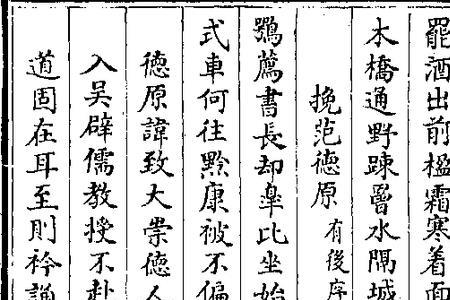 罷酒出前楹霜寒着面
木橋通野踈罾水閘城
挽范德原有後序
鶚薦書長却辠比坐始
式車何往黔康被不偏
德原諱致大崇德人
入吳辟儒教授不赴
道固在耳至則衿誦